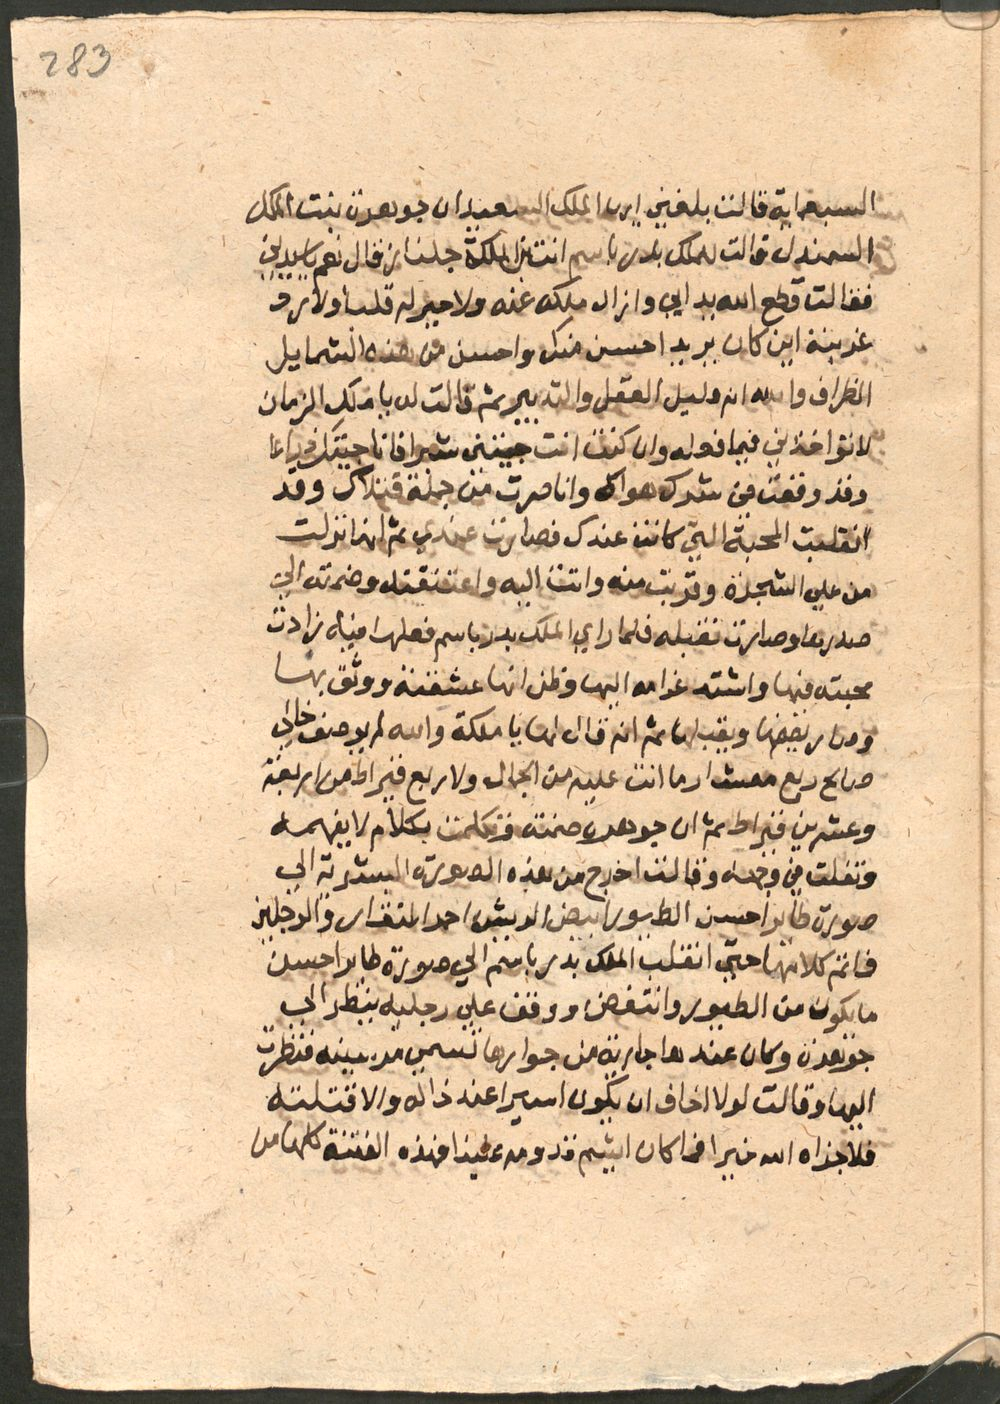 283
السبعماية قالت بلغني ايها الملك السعيد ان جوهرة بنت الملك
السمندل قالت للملك بدر باسم انت ابن الملكة جلناز قال نعم يا سيدتي
فقالت قطع الله يد ابي وازال ملكه عنه ولا جبر له قلبا ولا رد
غربته اين كان يريد احسن منك واحسن من هذه الشمايل
الظراف والله انه قليل العقل والتدبير ثم قالت له يا ملك الزمان
لا تواخذني فيما فعله وان كنت انت حبيتني شبرا فانا حبيتك ذراعا
وقد وقعت في شرك هواك وانا صرت من جملة قتلاك وقد
انقلبت المحبة التي كانت عندك فصارت عندي ثم انها نزلت
من علي الشجرة وقربت منه واتت اليه واعتنقته وضمته الي
صدرها وصارت تقبله فلما راي الملك بدر باسم فعلها فيه زادت
محبته فيها واشتد غرامه اليها وظن انها عشقته ووثق بها
وصار يضمها ويقبلها ثم انه قال لها يا ملكة والله لم يوصف خالي
صالح ربع معشار ما انت عليه من الجمال ولا ربع قيراط من اربعة
وعشرين قيراط ثم ان جوهرة ضمته وتكلمت بكلام لا يفهمه
وتفلت في وجهه وقالت اخرج من هذه الصورة البشرية الي
صورة طاير احسن الطيور ابيض الريش احمر المنقار والرجلين
فما تم كلامها حتي انقلب الملك بدر باسم الي صورة طاير احسن
ما يكون من الطيور وانتفض ووقف علي رجليه ينظر الي
جوهرة وكان عندها جارية من جوارها تسمي مرسينه فنظرت
اليها وقالت لولا اخاف ان يكون اسيرا عند خاله والا قتلته
فلا جزاه الله خيرا فما كان ايشم قدومه علينا فهذه الفتنة كلها من